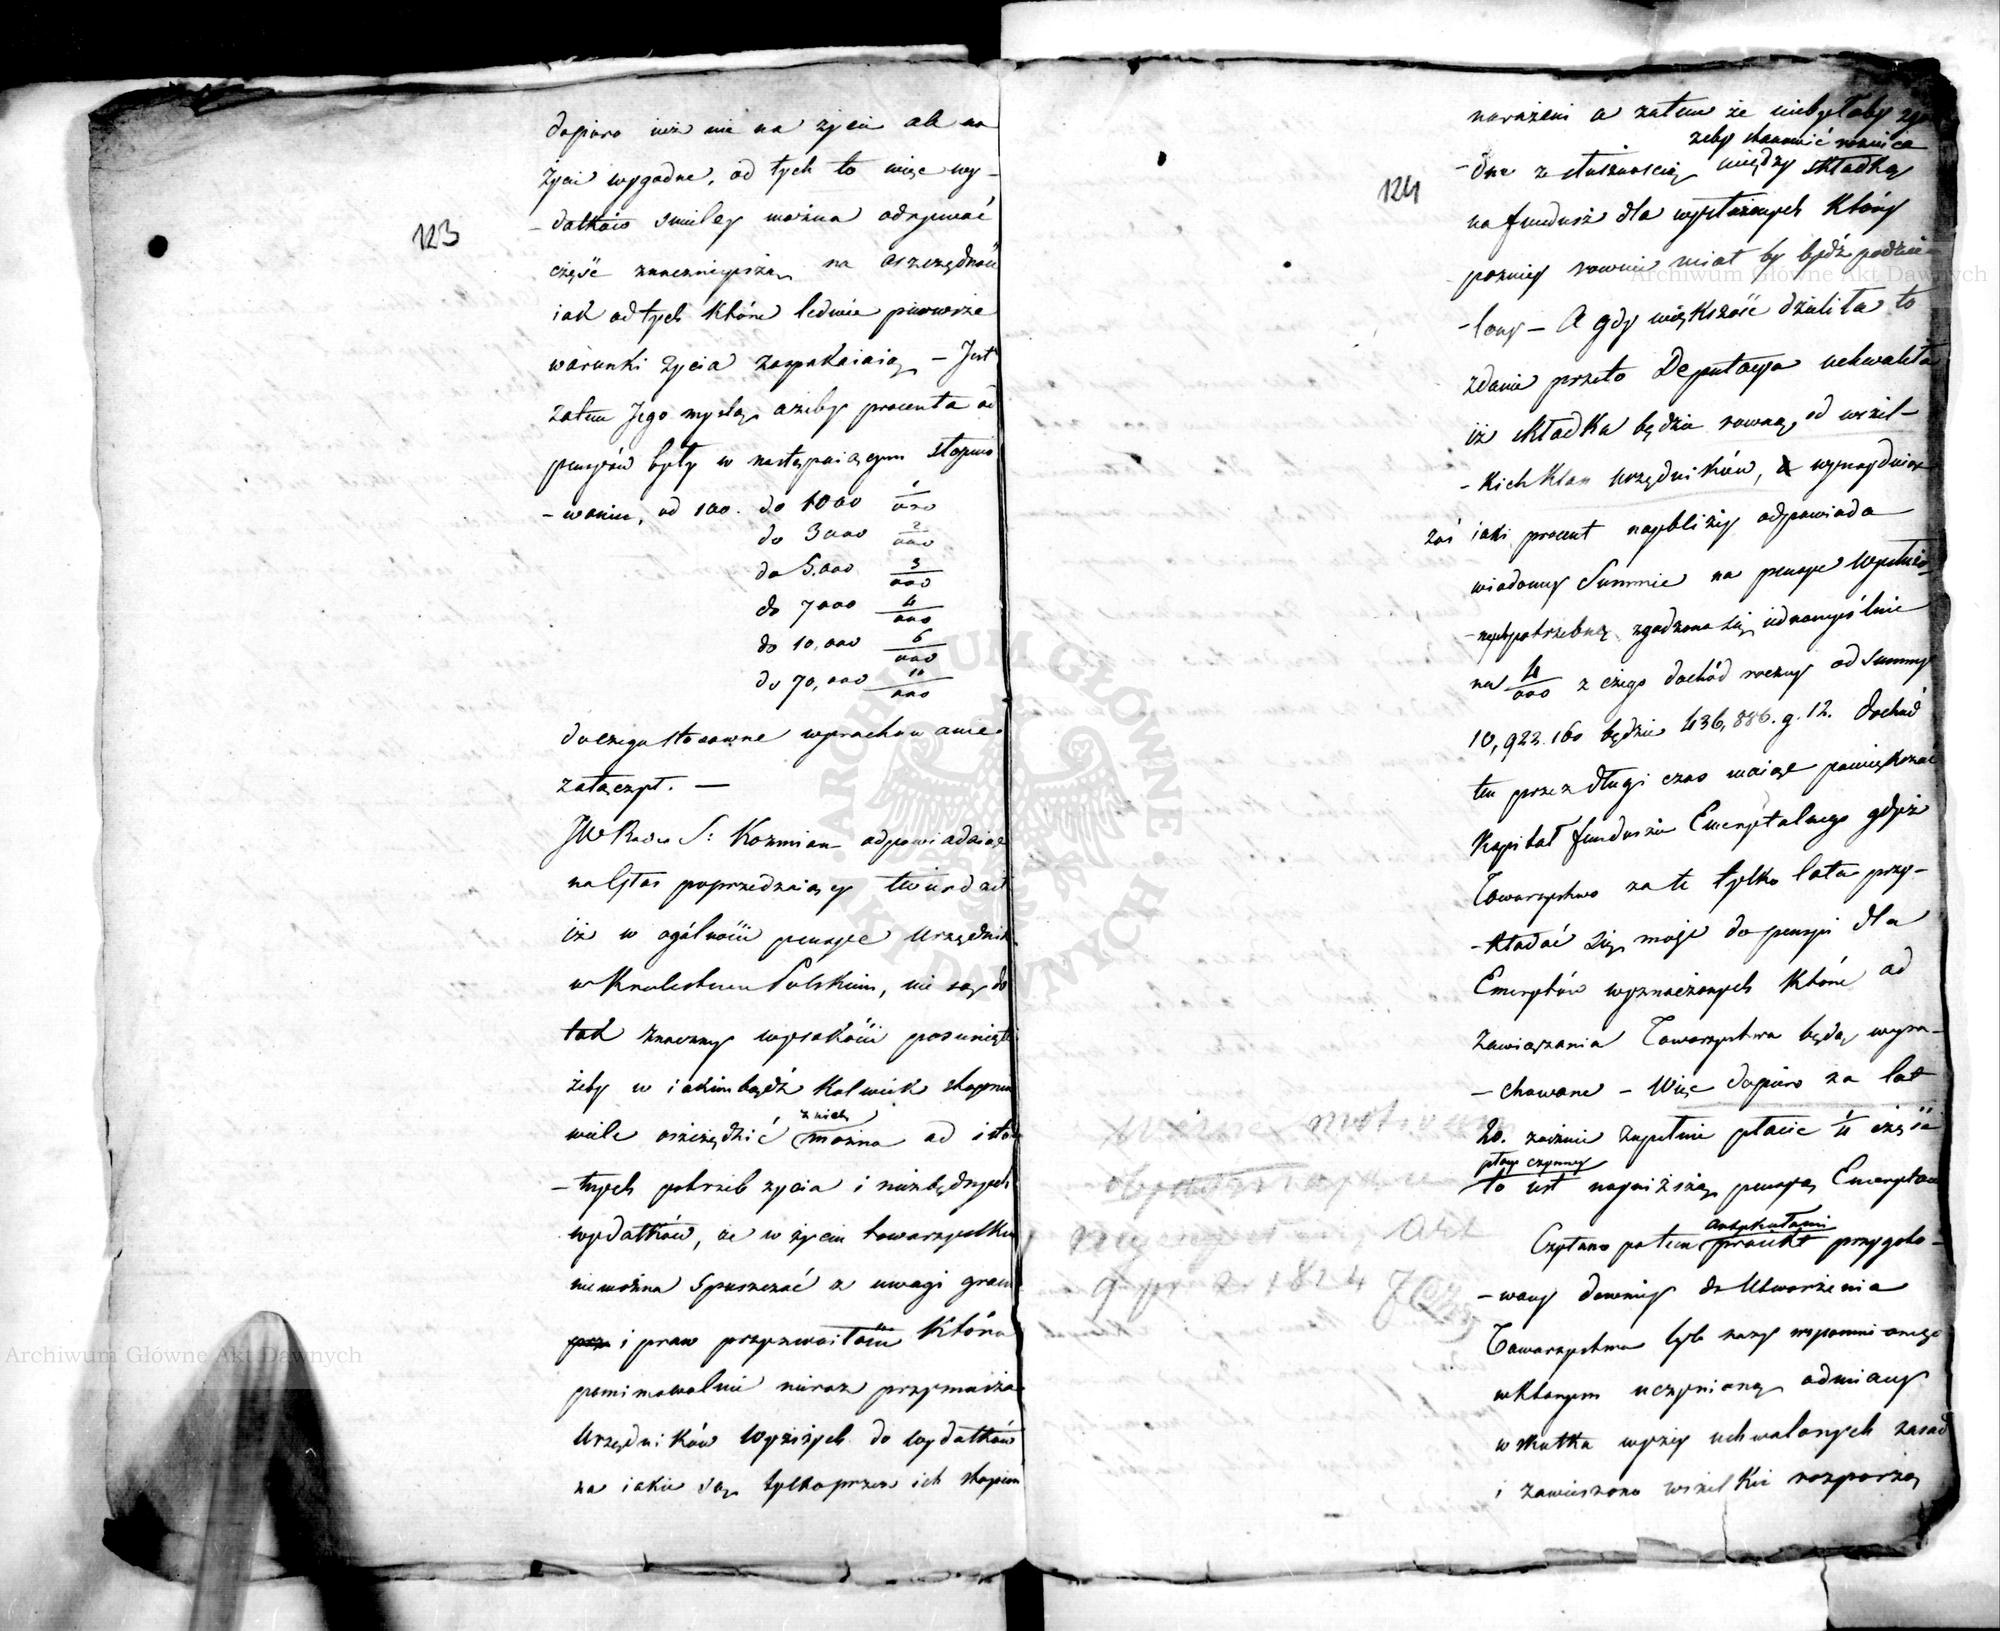 123
dopiero iuż nie na życie ale na
życie wygodne, od tych to więc wy-
-datków smieley można odrywać
część znacznieyszą na oszczędność
iak od tych które ledwie pierwsze
warunki życia zaspakaiaią – Jest
zatem Jego myślą ażeby procenta od
pensyów były w następuiącym stopnio
-waniu, od 100. do 1000 1/000
do 3000 2/000
do 5.000 3/000
do 7000 4/000
do 10,000 6/000
do 70,000 10/000
do czego stosowne wyrachowanie
załączył. —
JW Radca S: Kozmian odpowiadaiąc
na głos poprzedzaiący twierdził
iż w ogólności pensye Urzędnik
w Krolestwie Polskim, nie są do
tak znaczney wysokości posunięte
żeby w iakimbądź kolwiek stopniu
z nich
wiele oszczędzić można od isto
-tnych potrzeb życia i niezbędnych
wydatków, że w życiu towarzyskim
nie można spuszczać z uwagi
i praw przyzwoitości która
pomimowolnie nieraz przymusza
Urzędników wyższych do wydatków
na iakie są tylko przez ich stopień
124
narażeni a zatem że niebyłoby zgo
żeby stanowić roznice
-dne z słusznością między składką
na fundusz dla wysłużonych który
pozniey rownie miał by bydź podzie
-lony – A gdy większość dzieliła to
zdanie przeto Deputacya uchwaliła
iż składka będzie rowną od wszel-
-kich klas Urzędników, wynayduiąc
zaś iaki procent naybliżey odpowiada
wiadomey Summie na pensye
potrzebną zgodzono się iednomyślnie
na 4/000 z czego dochód roczny od Summy
10,922.160 będzie 436,886.g.12. dochod
ten przez długi czas maiąc powiększać
Kapitał funduszu Emerytalnego gdyż
Towarzystwo za te tylko lata przy-
-kładać się może do pensyi dla
Emerytów wyznaczonych które od
zawiązania Towarzystwa będą wyra-
-chowane – Więc dopiero za lat
20. zacznie zupełnie płacić 1/4 części
płacy czynney
to iest naywiższą pensyą Emerytom
artykułami
Czytano potem proiekt przygoto-
-wany dawniey do Utworzenia
Towarzystwa tyle razy wspomnionego
w ktorym uczynioną odmiany
w skutku wyżey uchwalonych zasad
i zawieszono wszelkie rozporzą